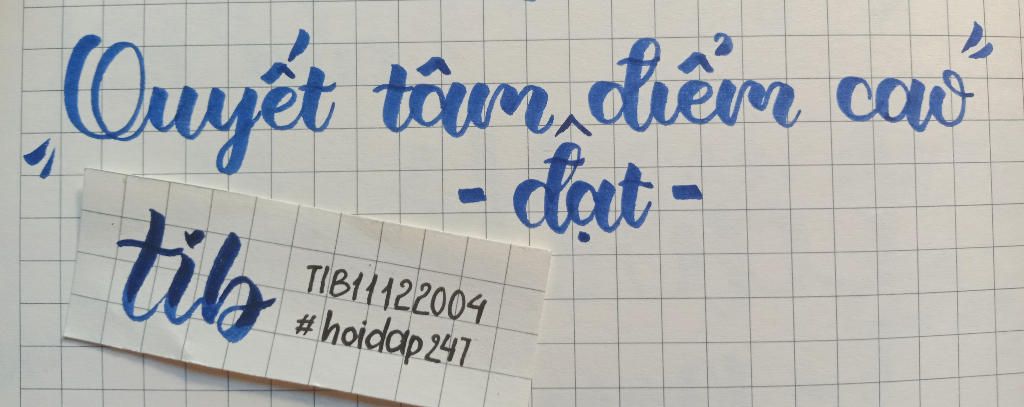 "Quyết tâm ^ điểm cao"
- đạt -
tib
TIB11122004
#hoidap247